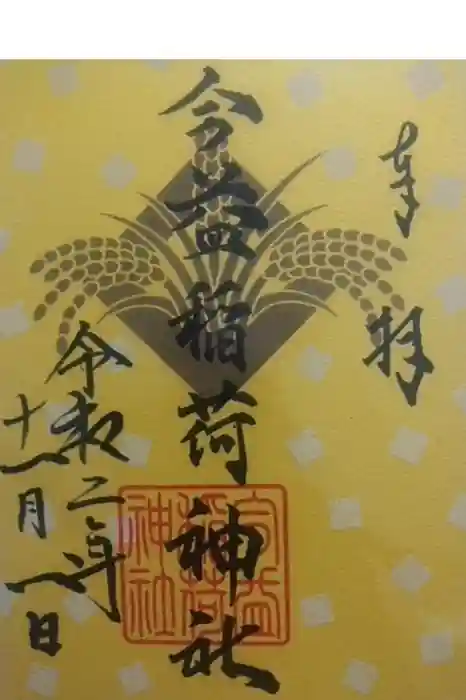 奉拝
益稲荷神社
令和二年
十一月一日
稲荷
神社